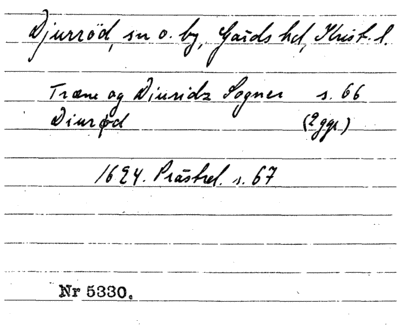 Djurröd, sn o. by, Gärds hd, Krist. l.
Træne og Diuridz Sogner s. 66
Diurød (2 ggr)
1624. Prästrel. s. 67
Nr 5330.